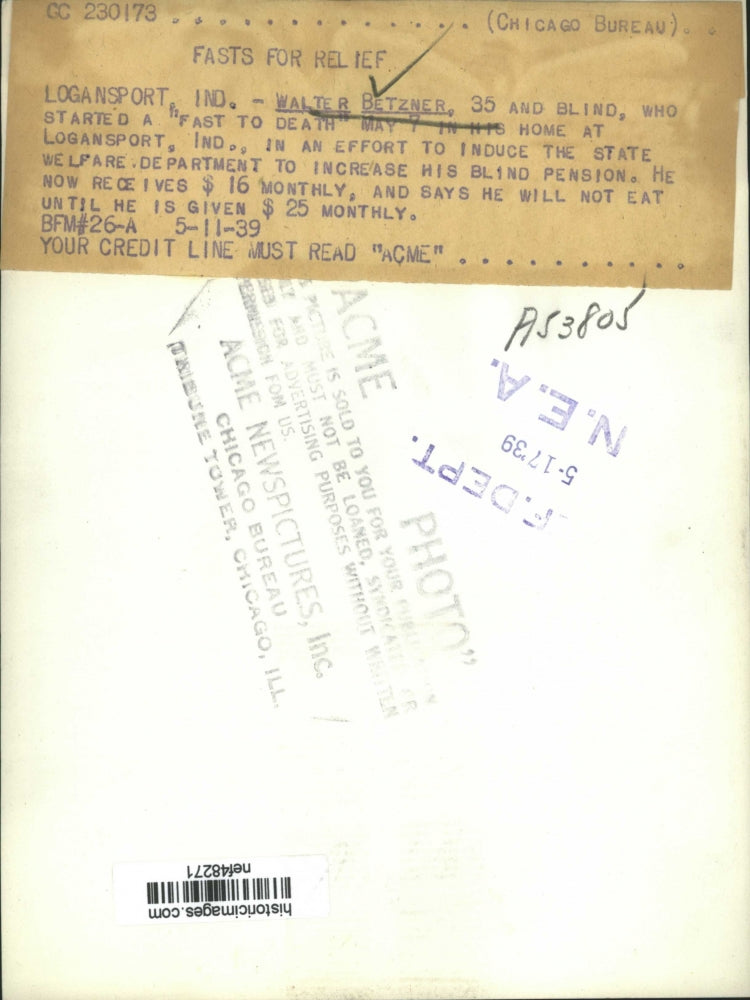 GC 230173 . . . . . . . . . . . . . . (CHICAGO BUREAU). .
FASTS FOR RELIEF
LOGANSPORT, IND. - WALTER BETZNER, 35 AND BLIND, WHO
STARTED A "FAST TO DEATH" MAY 7 IN HIS HOME AT
LOGANSPORT, IND., IN AN EFFORT TO INDUCE THE STATE
WELFARE DEPARTMENT TO INCREASE HIS BLIND PENSION. HE
NOW RECEIVES $ 16 MONTHLY, AND SAYS HE WILL NOT EAT
UNTIL HE IS GIVEN $ 25 MONTHLY.
BFM#26-A 5-11-39
YOUR CREDIT LINE MUST READ "ACME" . . . . . . . . . . .
A53805
N.E.A.
5-17'39
F. DEPT.
ACME PHOTO"
PICTURE IS SOLD TO YOU FOR YOUR
AND MUST NOT BE LOANED, SYNDICATED OR
FOR ADVERTISING PURPOSES WITHOUT WRITTEN
PERMISSION FOM US.
ACME NEWSPICTURES, Inc.
CHICAGO BUREAU
TRIBUNE TOWER, CHICAGO, ILL.
historicimages.com
nef48271